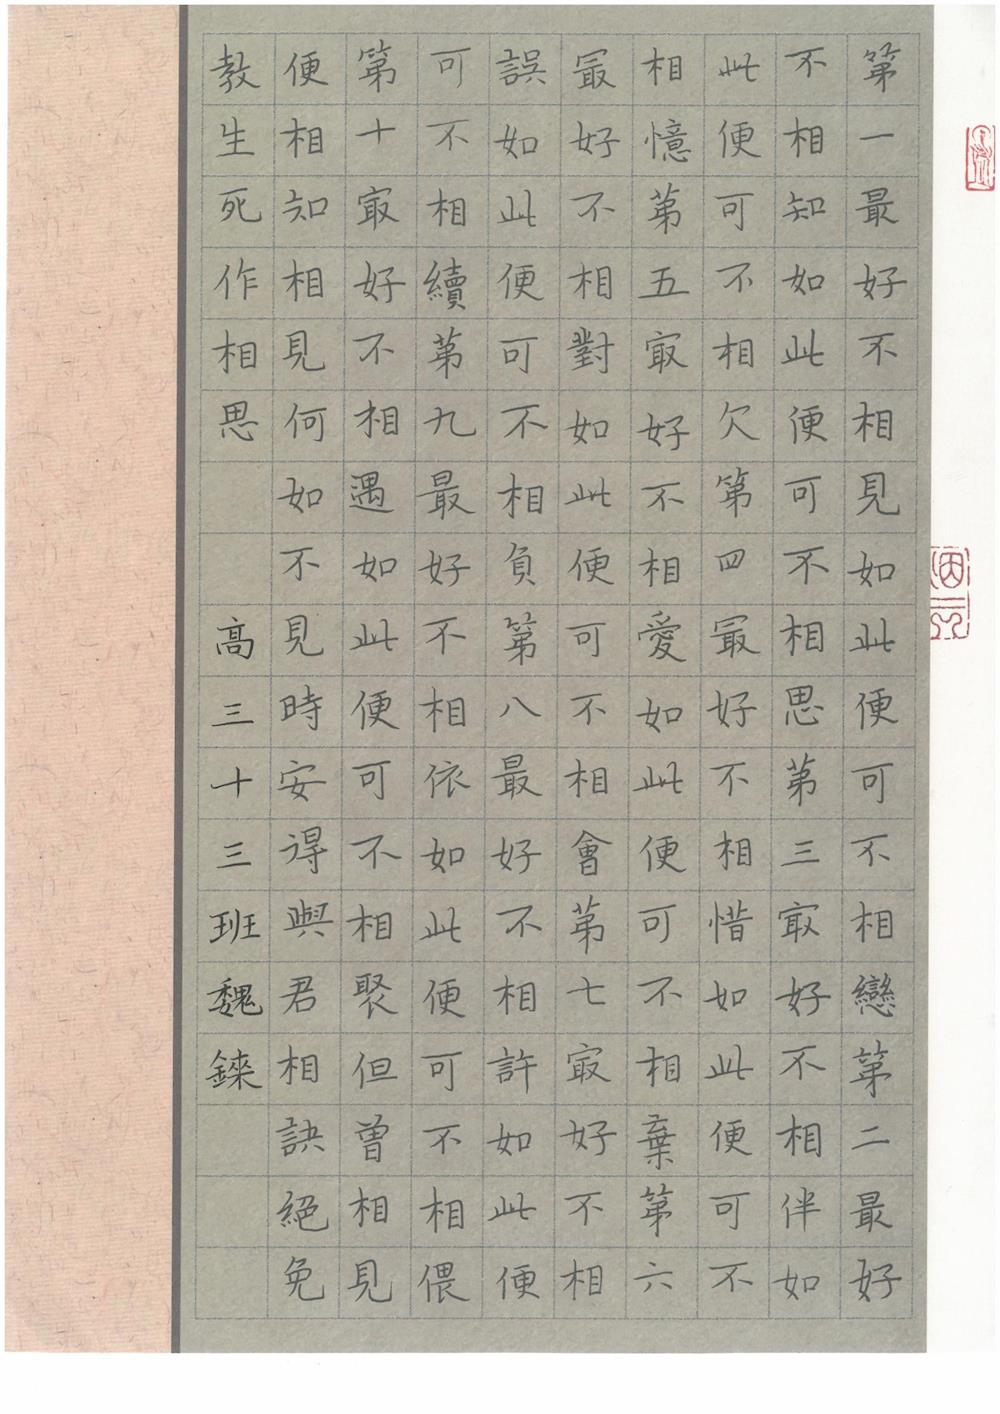 第一最好不相見如此便可不相戀第二最好
不相知如此便可不相思第三最好不相伴如
此便可不相欠第四最好不相惜如此便可不
相憶第五最好不相愛如此便可不相棄第六
最好不相對如此便可不相會第七最好不相
誤如此便可不相負第八最好不相許如此便
可不相續第九最好不相依如此便可不相偎
第十最好不相遇如此便可不相聚但曾相見
便相知相見何如不見時安得與君相訣絕免
教生死作相思
高三十三班魏錸